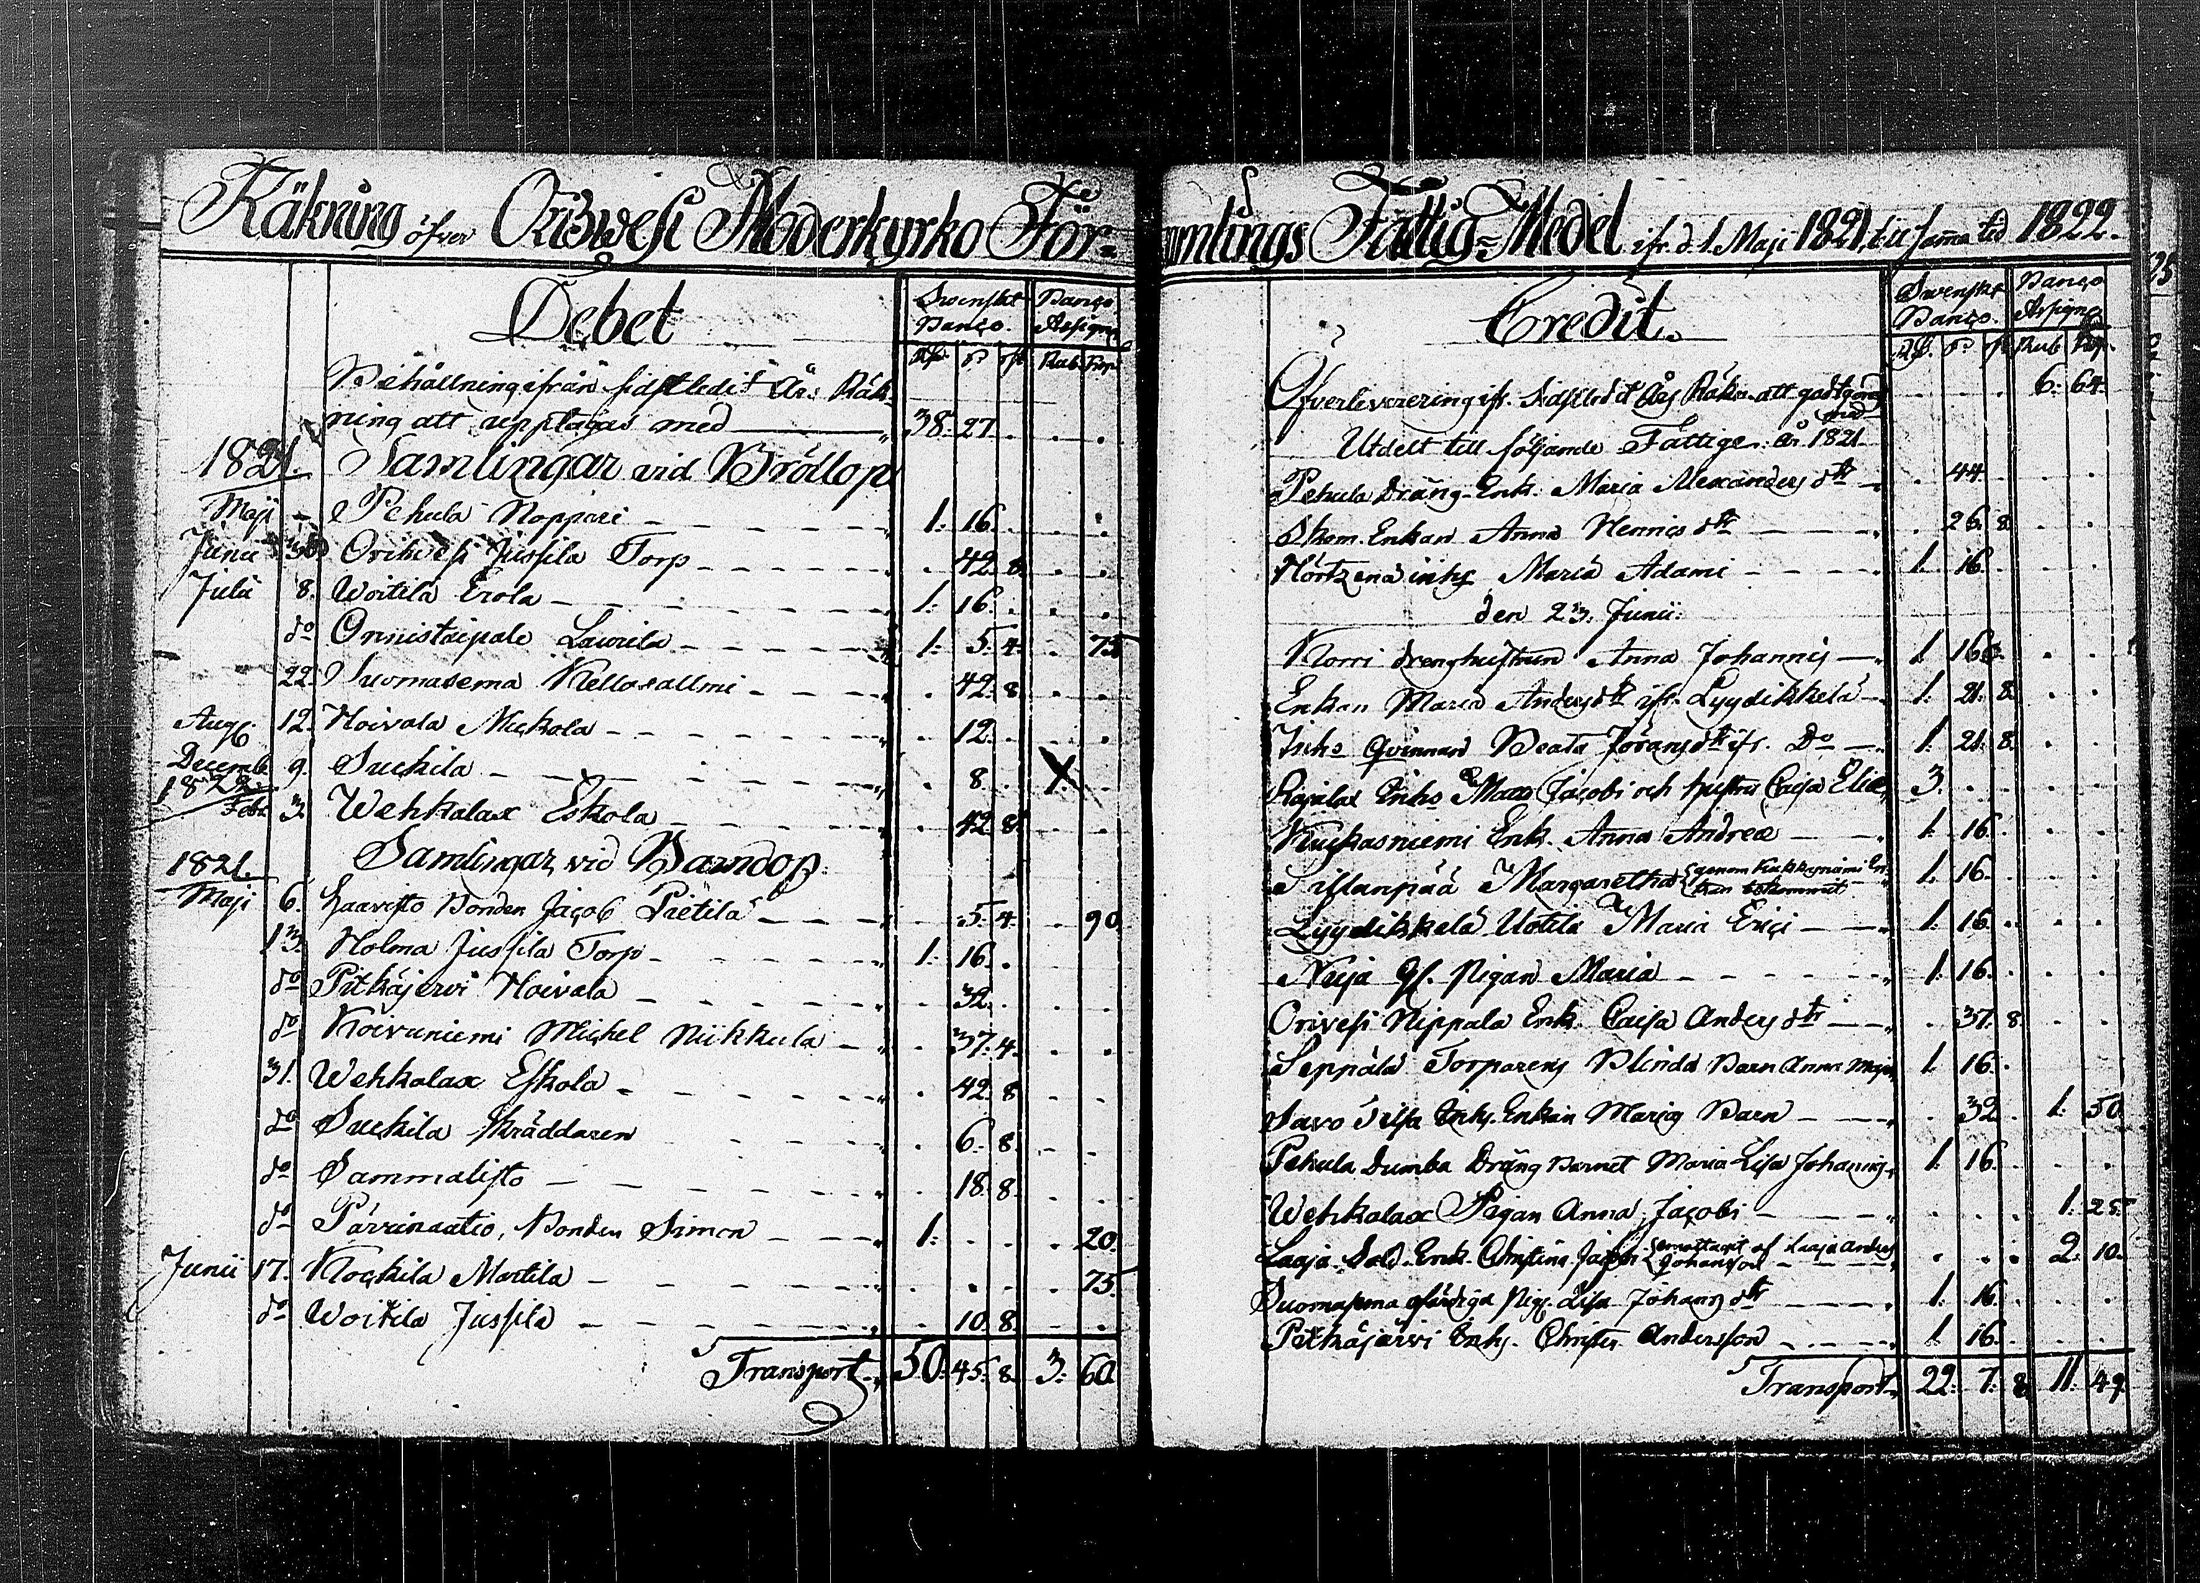 Räkning öfver Orihwesi Moderkyrko För-
Debet
Swenskt Banco. Banco Assigne
Rdr. s. rst. Rub. Kop.
Behållning ifrån sidstledit Års Räk-
ning att upptagas med 38. 27.
1821. Samlingar vid Bröllop
Maji Pekula Noppari 1. 16.
Junii Orihvesi Jussila Torp 42. 8.
Julii 8. Woitila Erola 1. 16.
do Onnistaipale Laurila 1. 5. 4. 75
22. Suomasema Kellosallmi 42. 8.
Aug. 12. Hoivala Mickola 12.
Decemb. 9. Suckila 8. X
1822.
Febr. 3. Wehkalax Eskola 42. 8.
1821. Samlingar vid Barndop.
Maji 6. Haavisto Bonden Jacob Pietilä 5. 4. 90
13. Holma Jussila Torp 1. 16.
do Pitkäjervi Hoivala 32.
do Koivuniemi Michel Niikkula 37. 4.
31. Wehkalax Eskola 42. 8
do Suckila Skräddaren 6. 8.
do Sammalisto 18. 8.
do Bonden Simon 1. 20.
Junii 17. Kockila Martila 75.
do Woitila Jussila 10. 8.
Transport 50. 45. 8. 3. 60.
samlings Fattig-Medel ifr. d. 1. Maji 1821. till samma tid 1822.
Credit.
Swenskt Banco. Banco Assigne
Rdr. s. rst. Rub. Kop.
Öfverleverering ifr. sidstledit Års Räkn. att godtgöras 6. 64.
med
Utdelt till följande Fattige år 1821.
Pekula Dräng-Enk. Maria Alexanders dtr 44.
Enkan Anna Hennics dtr 26. 8.
inhs Maria Adami 1. 16.
den 23. Junii.
Korri drenghustrun Anna Johannis 1. 16.
Enkan Maria Anders dtr ifr. Lyydikkelä 1. 21. 8.
Inhs Qvinnan Beata Jörans dtr ifr. Do 1. 21. 8.
Inhs Jacobi och hustru Caisa Eliæ 3.
Kuckasniemi Enk. Anna Andreæ 1. 16.
Sillanpää Margaretha genom Kuckasniemi En-
kan bekommit 1. 16.
Lyydikkelä Uotila Maria Erici 1. 16.
Neija Pigan Maria 1. 16.
Orivesi Nippala Enk. Caisa Anders dtr 37. 8.
Seppälä Torparens Blinda Barn Anna Maja 1. 16.
Savo Inhs. Enkan Marias Barn 32. 1. 50
Pekula Dumba Dräng Barnet Maria Lisa Johannis 1. 16.
Wehkalax Pigan Anna Jacobi 1. 25.
Laaja Sold. Enk. Christina emottagit af Laaja Anders
Johansson 2. 10.
Suomasema ofärdiga Pig. Lisa Johans dtr 1. 16.
Pitkäjärvi Inhs. Christer Andersson 1. 16.
Transport 22. 7. 8. 11. 49.